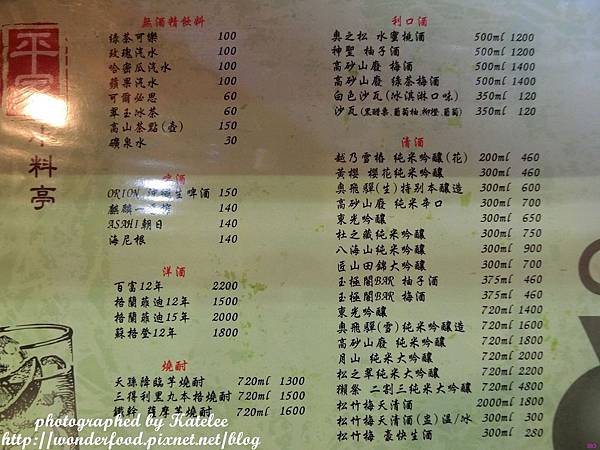 平
料亭
無酒精飲料
綠茶可樂 100
玫瑰汽水 100
哈密瓜汽水 100
蘋果汽水 100
可爾必思 60
翠玉冰茶 60
高山茶點(壺) 150
礦泉水 30
啤酒
ORION 生啤酒 150
麒麟一 140
ASAHI朝日 140
海尼根 140
洋酒
百富12年 2200
格蘭菲迪12年 1500
格蘭菲迪15年 2000
蘇格登12年 1800
燒酎
天孫降臨芋燒酎 720ml 1300
三得利黑丸本格燒酎 720ml 1500
鐵幹 薩摩芋燒酎 720ml 1600
利口酒
奧之松 水蜜桃酒 500ml 1200
神聖 柚子酒 500ml 1200
高砂山廢 梅酒 500ml 1400
高砂山廢 綠茶梅酒 500ml 1400
白色沙瓦(冰淇淋口味) 350ml 120
沙瓦(黑醋栗,葡萄柚,柳橙,葡萄) 350ml 120
清酒
越乃雪椿 純米吟釀(花) 200ml 460
黃櫻 櫻花純米吟釀 300ml 460
奧飛驒(生)特別本釀造 300ml 600
高砂山廢 純米辛口 300ml 700
東光吟釀 300ml 650
杜之藏純米吟釀 300ml 750
八海山純米吟釀 300ml 900
匠山田錦大吟釀 300ml 700
玉極閣BAR 柚子酒 375ml 460
玉極閣BAR 梅酒 375ml 460
東光吟釀 720ml 1400
奧飛驒(雪)純米吟釀造 720ml 1600
高砂山廢 純米吟釀 720ml 1800
月山 純米大吟釀 720ml 1800
松之翠純米大吟釀 720ml 2200
獺祭 二割三純米大吟釀 720ml 4800
松竹梅天清酒 2000ml 1800
松竹梅天清酒(壺)溫/冰 300ml 300
松竹梅 豪快生酒 300ml 280
photographed by Katelee
http://wonderfood.pixnet.net/blog